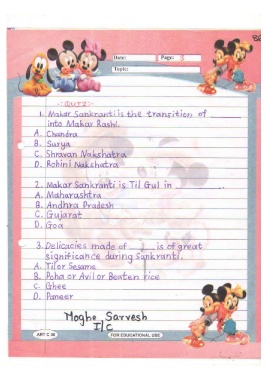 Date: Page:
Topic:
-:QUIZ:-
1. Makar Sankranti is the transition of ____
into Makar Rashi.
A. Chandra
B. Surya
C. Shravan Nakshatra
D. Rohini Nakshatra
2. Makar Sankranti is Til Gul in ____.
A. Maharashtra
B. Andhra Pradesh
C. Gujarat
D. Goa
3. Delicacies made of ____ is of great
significance during Sankranti.
A. Til or Sesame
B. Poha or Avil or Beaten rice
C. Ghee
D. Paneer
Moghe Sarvesh
I/C
ART C 36 FOR EDUCATIONAL USE